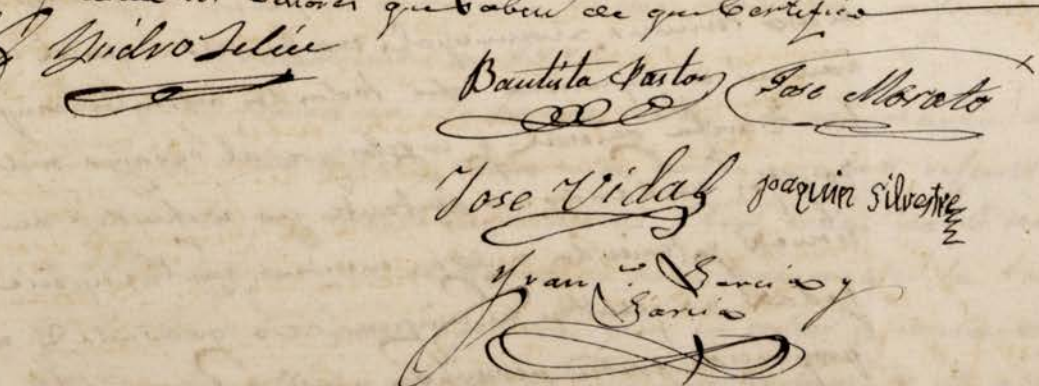 los Señores que saben de que Certifico
Ysidro Feliu
Bautista Pastor Jose Morato
Jose Vidal joaquin silvestre
Fran.co Garcia y
Garcia